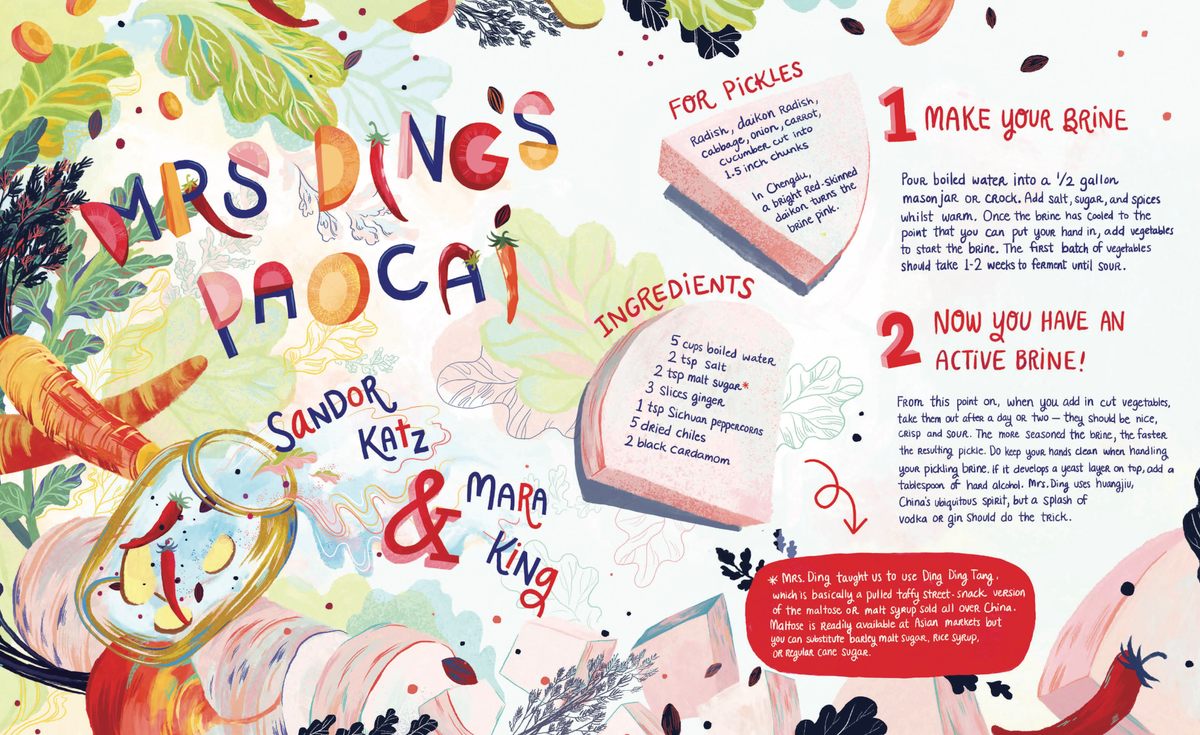 MRS DING'S
PAOCAI
SANDOR
KATZ
&
MARA
KING
FOR PICKLES
Radish, daikon Radish,
cabbage, onion, carrot,
cucumber cut into
1.5 inch chunks
In Chengdu,
a bright Red-skinned
daikon turns the
brine pink.
INGREDIENTS
5 cups boiled water
2 tsp salt
2 tsp malt sugar*
3 slices ginger
1 tsp Sichuan peppercorns
5 dried chiles
2 black cardamom
1 MAKE YOUR BRINE
Pour boiled water into a 1/2 gallon
mason jar or crock. Add salt, sugar, and spices
whilst warm. Once the brine has cooled to the
point that you can put your hand in, add vegetables
to start the brine. The first batch of vegetables
should take 1-2 weeks to ferment until sour.
2 NOW YOU HAVE AN
ACTIVE BRINE!
From this point on, when you add in cut vegetables,
take them out after a day or two — they should be nice,
crisp and sour. The more seasoned the brine, the faster
the resulting pickle. Do keep your hands clean when handling
your pickling brine. If it develops a yeast layer on top, add a
tablespoon of hard alcohol. Mrs. Ding uses huangjiu,
China's ubiquitous spirit, but a splash of
vodka or gin should do the trick.
* Mrs. Ding taught us to use Ding Ding Tang,
which is basically a pulled taffy street-snack version
of the maltose or malt syrup sold all over China.
Maltose is readily available at Asian markets but
you can substitute barley malt sugar, rice syrup,
or regular cane sugar.